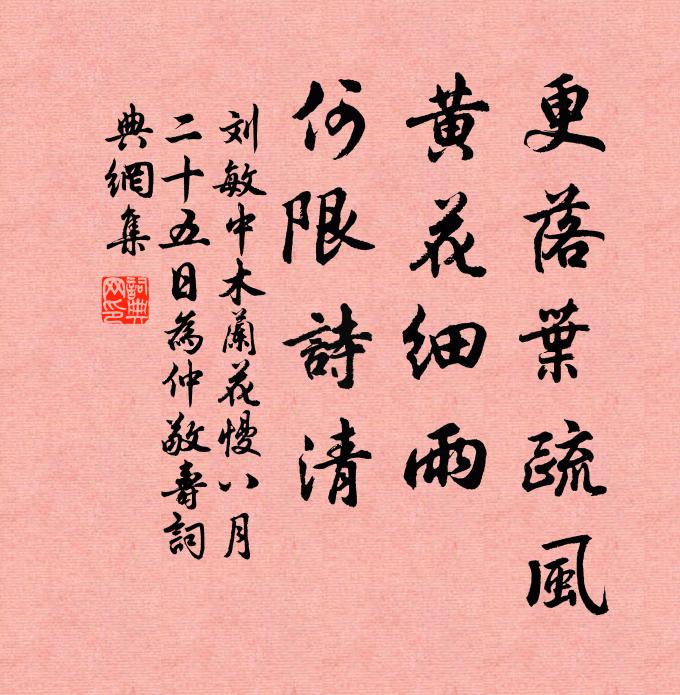 更落葉疏風
黃花細雨
何限詩清
刘敏中木蘭花慢八月
二十五日為仲敬壽詞
典網集
詞典
网印